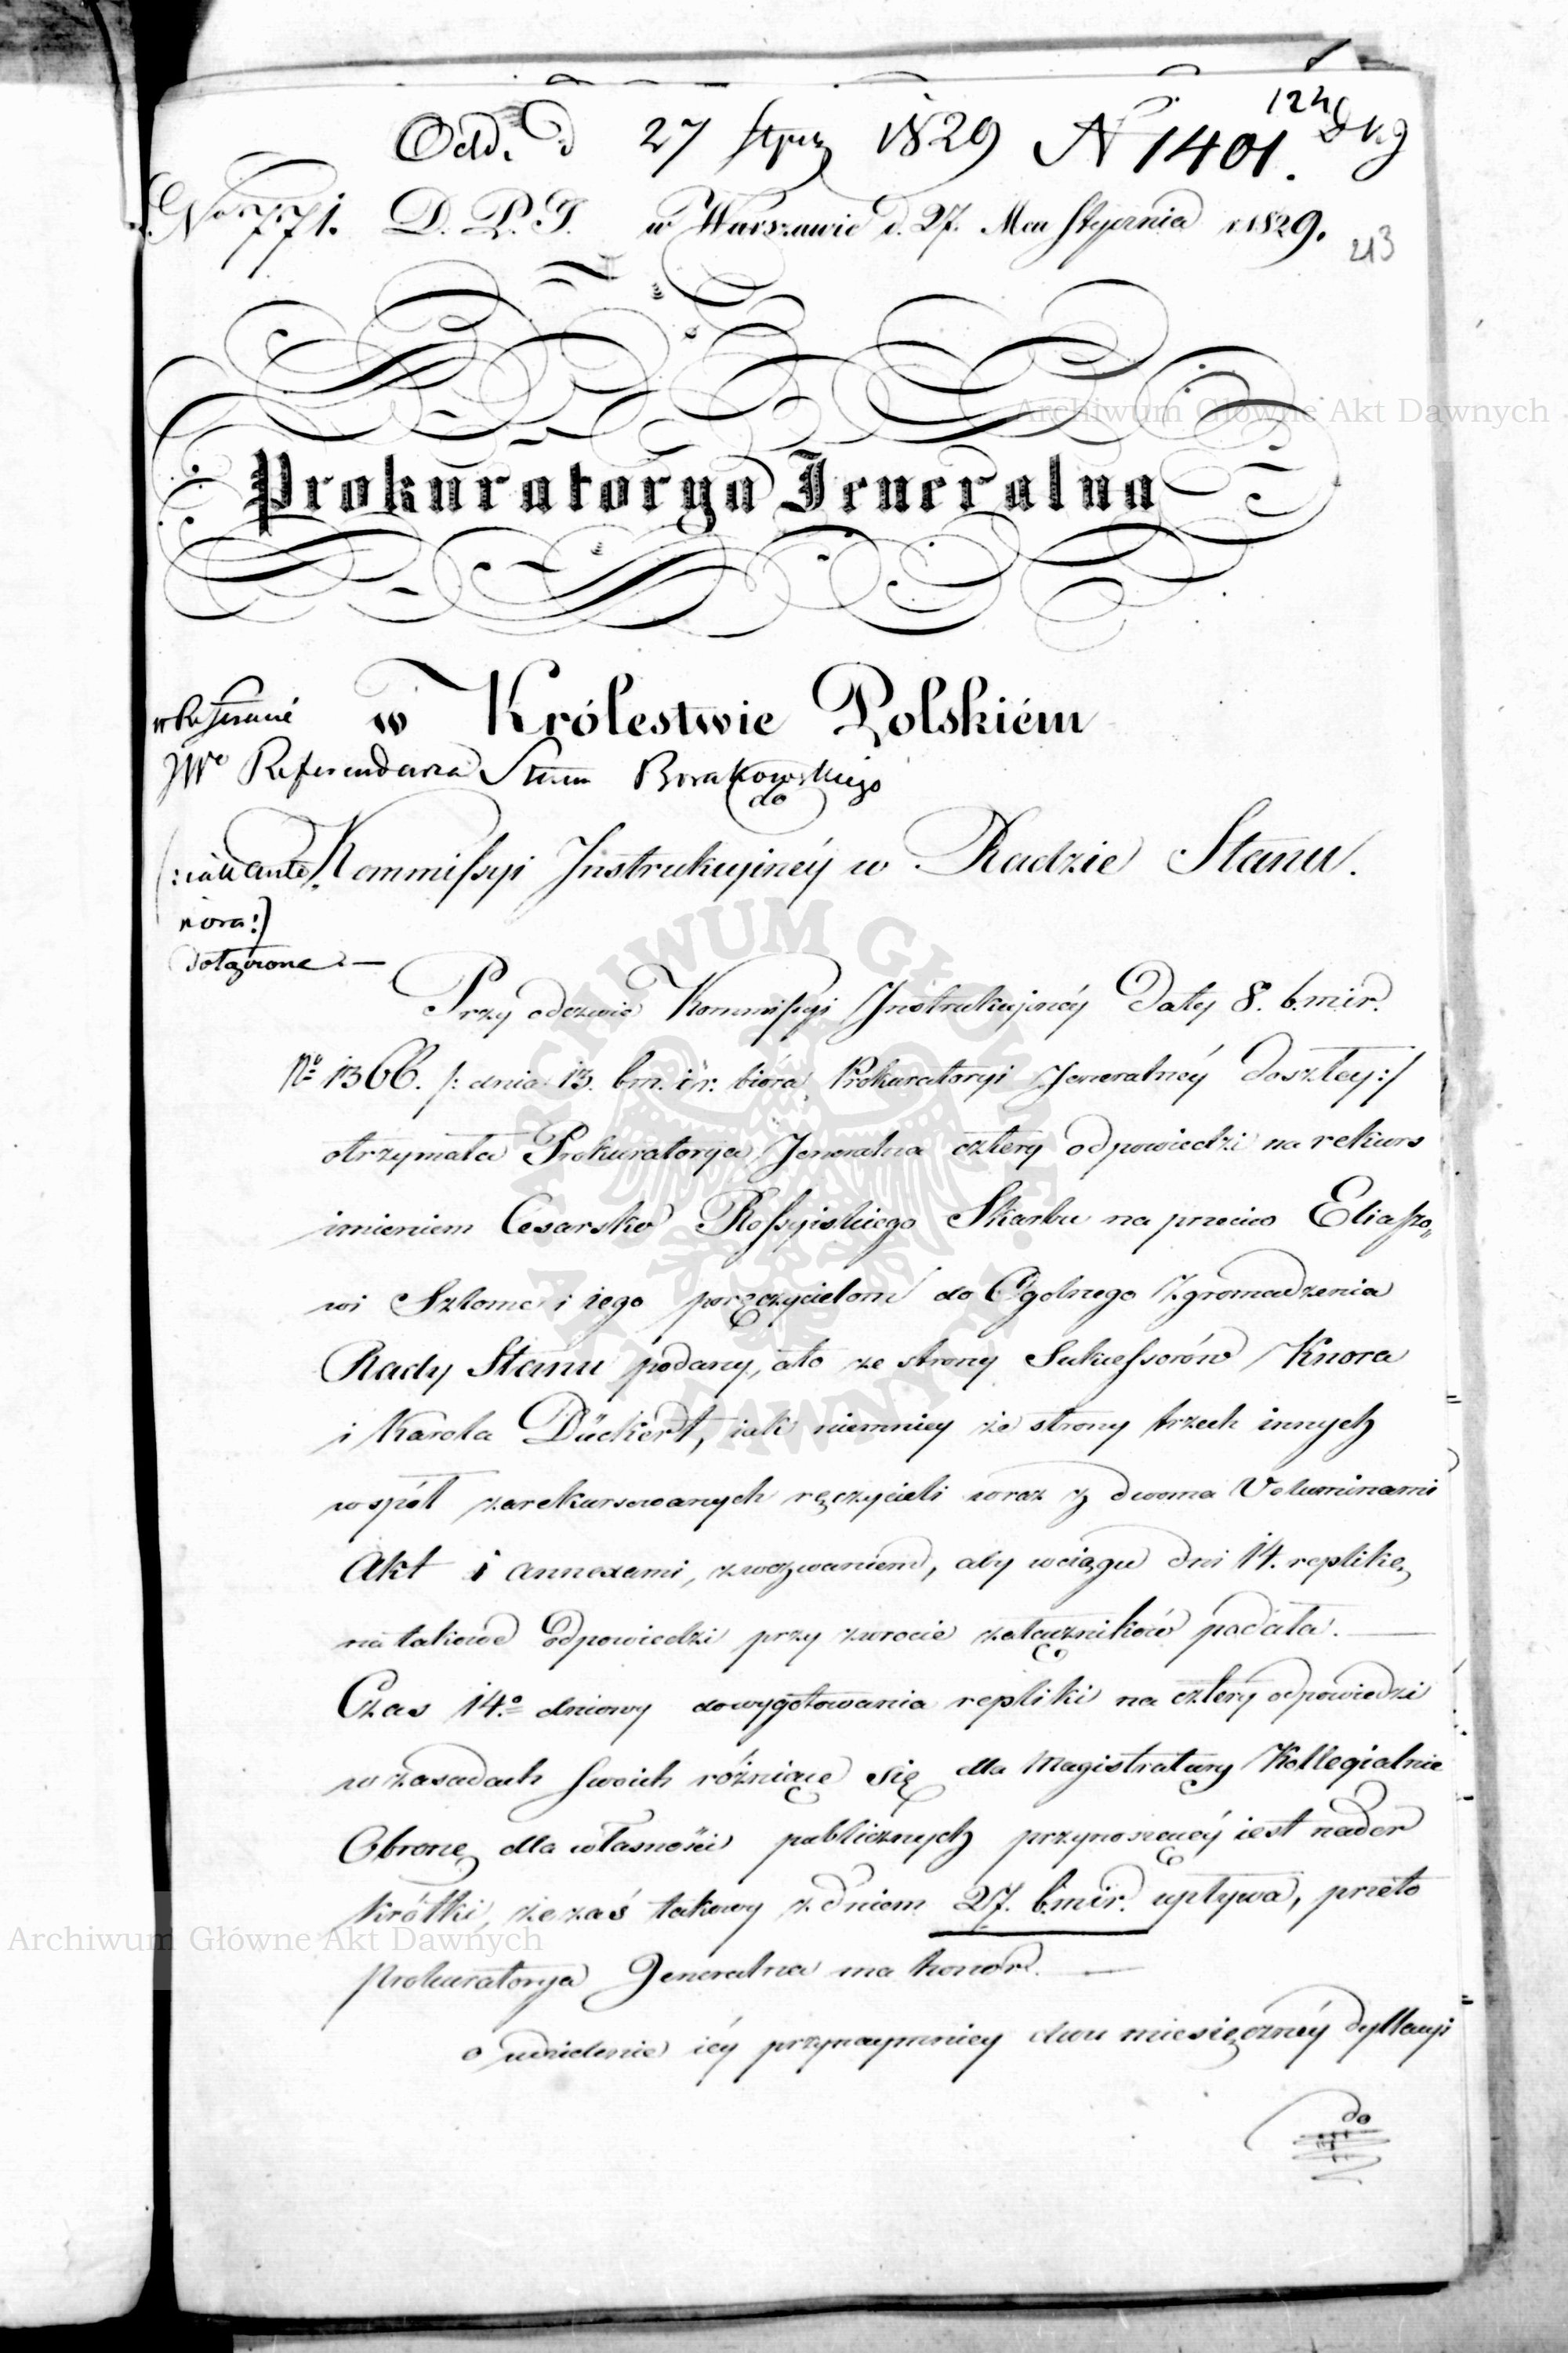 Odd. d 27 Stycz 1829 N 1401.
124
No 771. D. P. J. w Warszawie d. 27. Mca Stycznia r. 1829.
213
Prokuratorya Jeneralna
w Królestwie Polskiém
JWo Referendarza Stanu Brzakowskiego
do
Kommissyi Instrukcyinéy w Radzie Stanu.
dołączone —
Przy odezwie Kommissyi Instrukcyinéy Daty 8. b. m i r.
No 1366. /: dnia 13. b. m. i r. bióra Prokuratoryi Jeneralnéy doszłey :/
otrzymała Prokuratorya Jeneralna cztery odpowiedzi na rekurs
imieniem Cesarsko Rossyiskiego Skarbu na przeciw Eliaszo„
wi Szlomc i iego poręczycielom do Ogolnego Zgromadzenia
Rady Stanu podany, ato ze strony Sukcessorów Knora
i Karola Dückert, iak niemniey ze strony trzech innych
współ zarekursowanych ręczycieli wraz z dwoma Voluminami
Akt i annexami, z wezwaniem, aby wciągu dni 14. replikę
na takowe odpowiedzi przy zwrocie załączników podała. —
Czas 14o dniowy do wygotowania repliki na cztery odpowiedzi
w zasadach swoich różniące się dla Magistratury Kollegialnie
Obronę dla własności publicznych przynoszącéy iest nader
krótki, że zaś takowy z dniem 27. b. m i r. upływa, przeto
Prokuratorya Jeneralna ma honor. —
o udzielenie iéy przynaymniey dwu miesięcznéy dyllacyi
do
Archiwum Główne Akt Dawnych
Archiwum Główne Akt Dawnych
ARCHIWUM GŁÓWNE AKT DAWNYCH